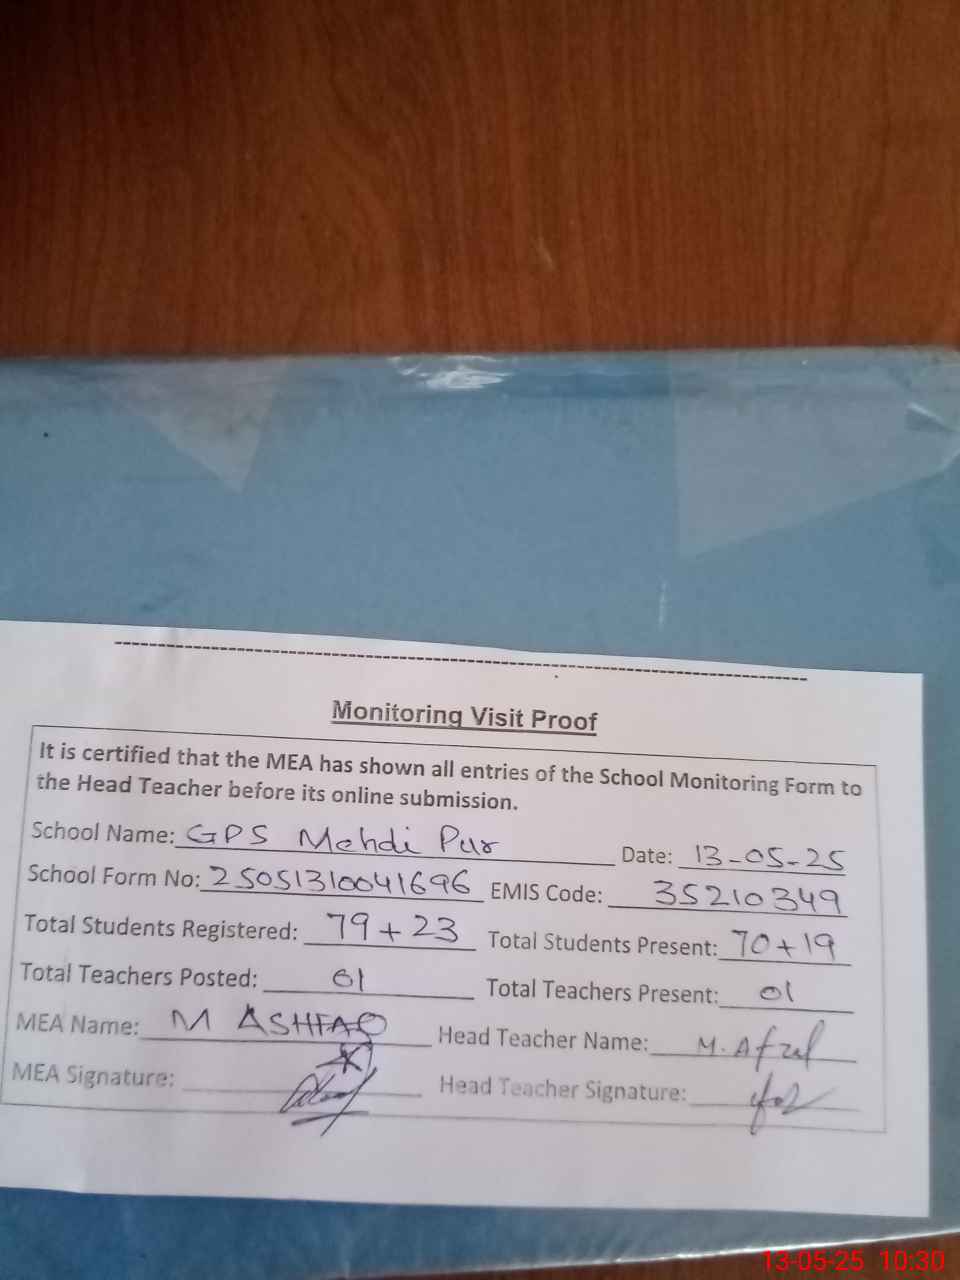 Monitoring Visit Proof
It is certified that the MEA has shown all entries of the School Monitoring Form to
the Head Teacher before its online submission.
School Name: GPS Mehdi Pur Date: 13-05-25
School Form No: 25051310041696 EMIS Code: 35210349
Total Students Registered: 79+23 Total Students Present: 70+19
Total Teachers Posted: 01 Total Teachers Present: 01
MEA Name: M ASHFAQ Head Teacher Name: M. Afzal
MEA Signature: Head Teacher Signature:
13-05-25 10:30